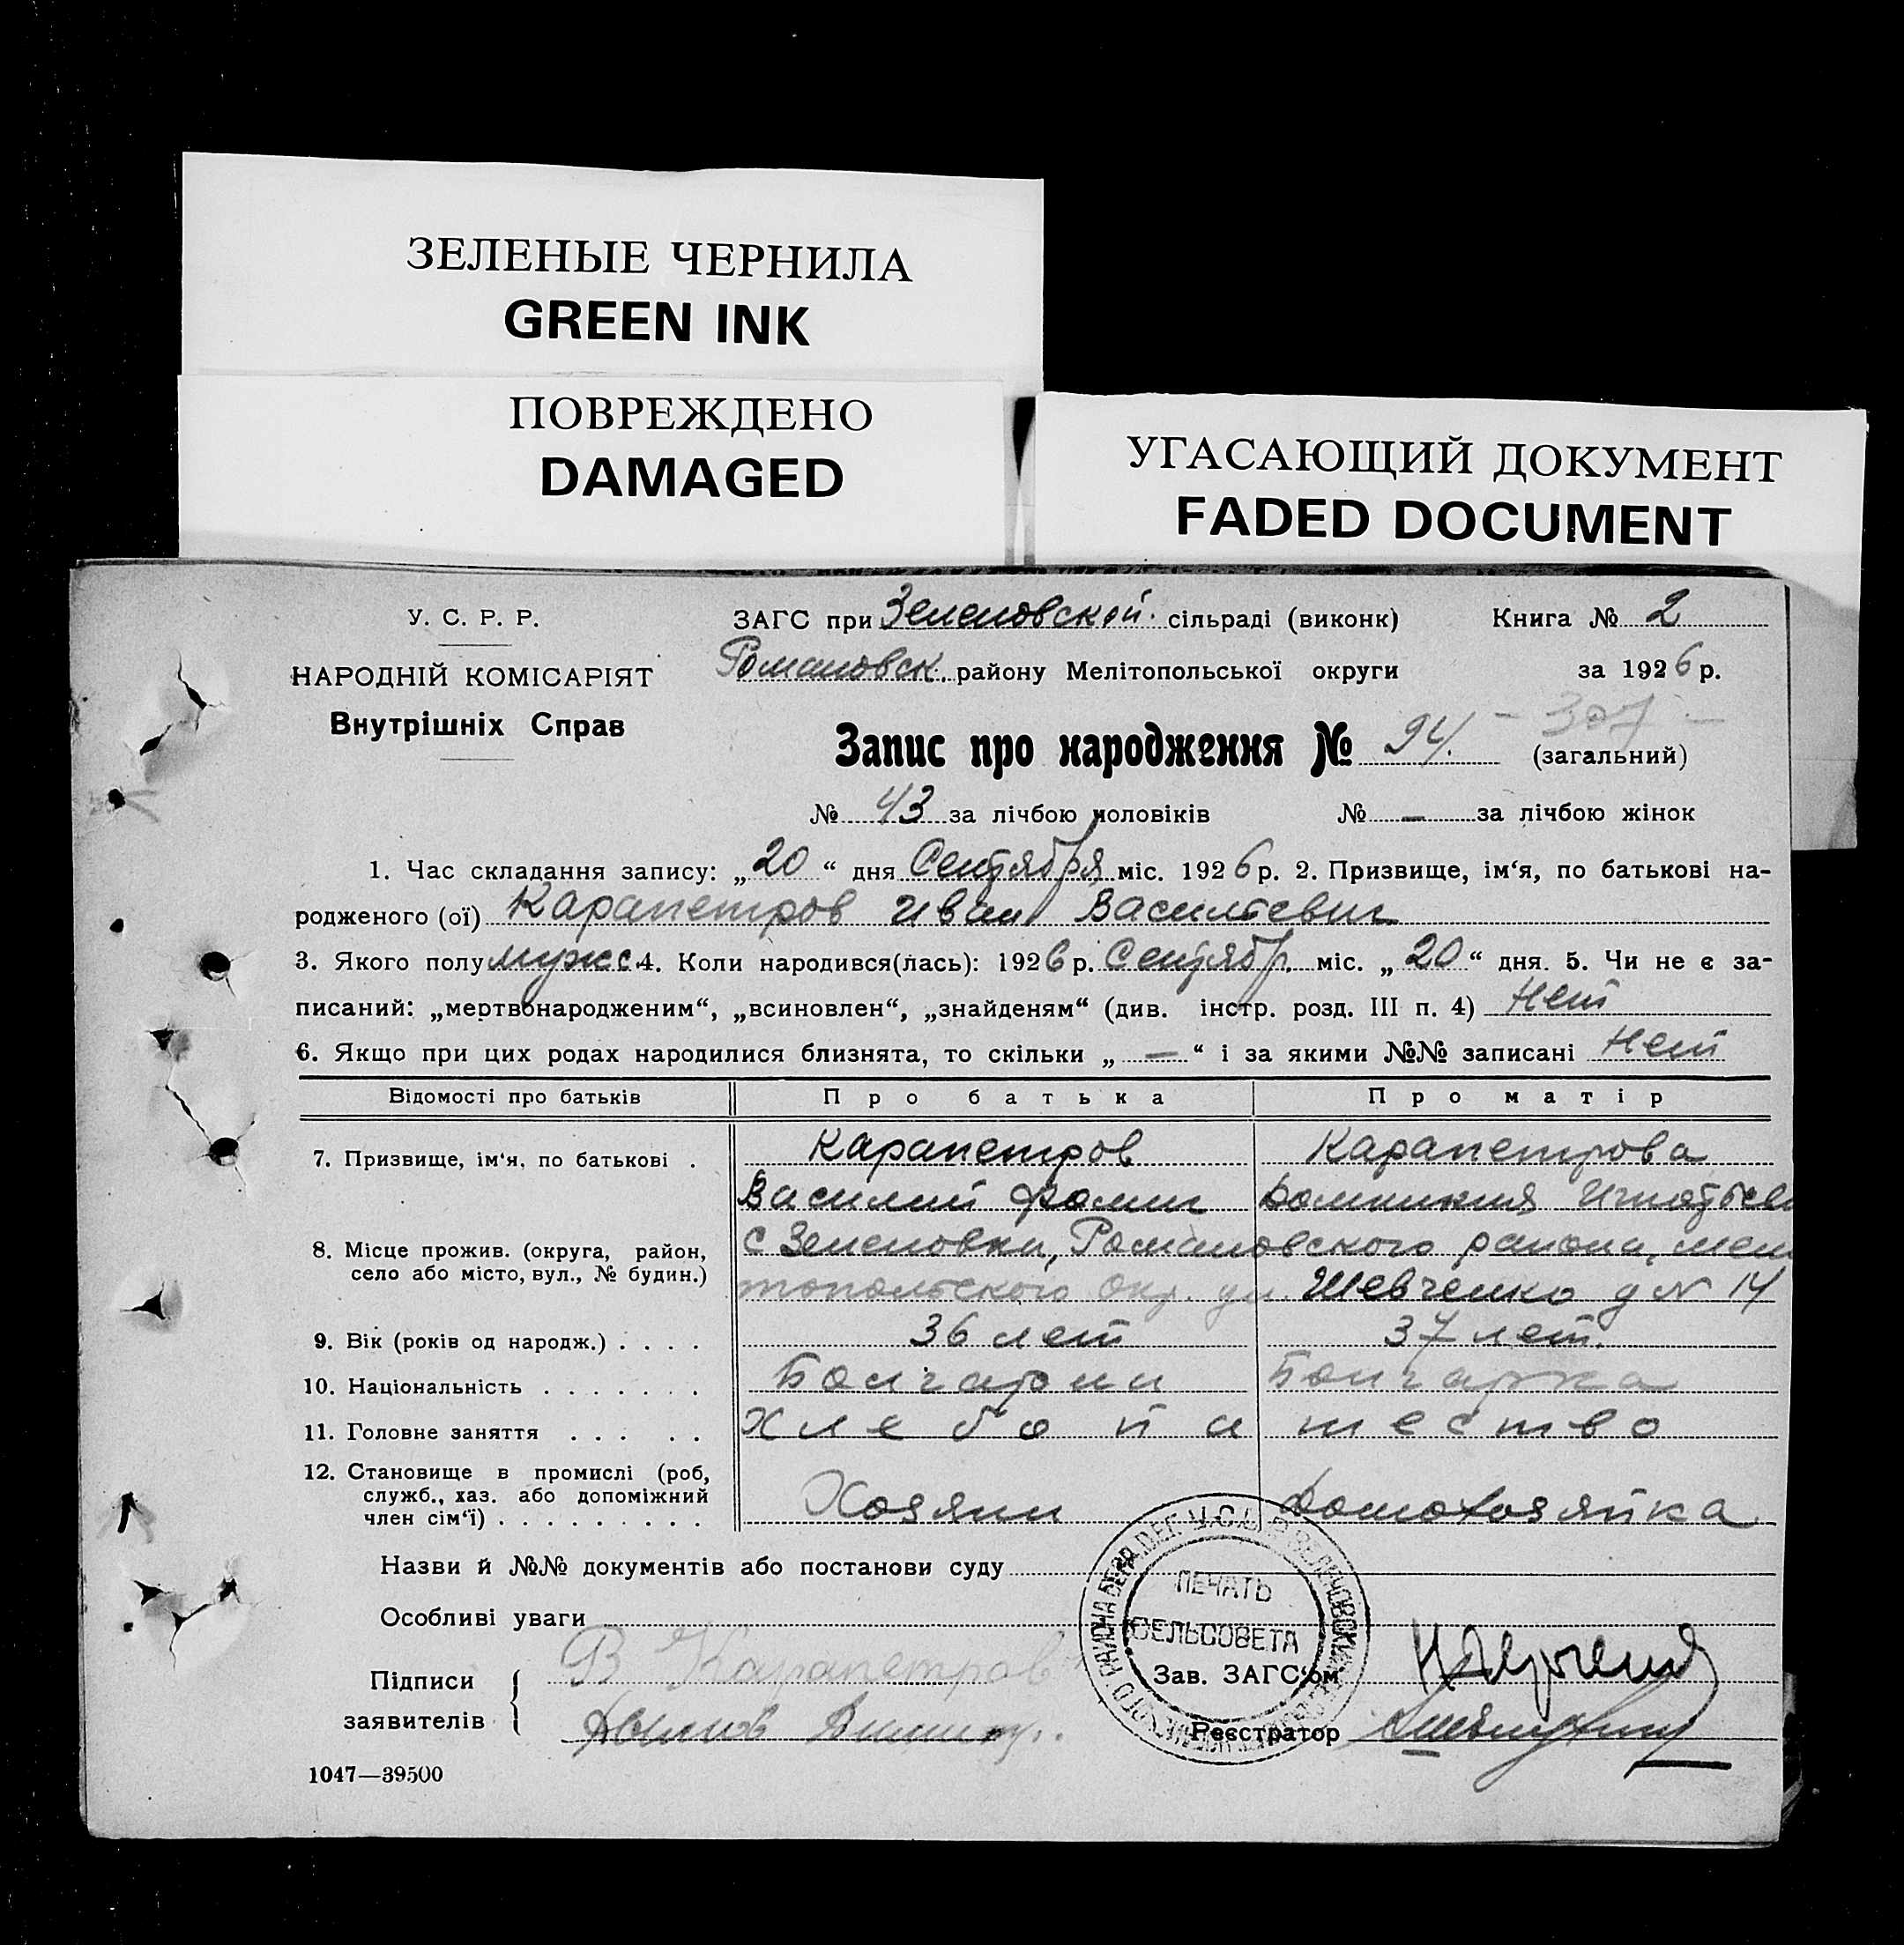 ЗЕЛЕНЫЕ ЧЕРНИЛА
GREEN INK
ПОВРЕЖДЕНО
DAMAGED
УГАСАЮЩИЙ ДОКУМЕНТ
FADED DOCUMENT
У. С. Р. Р.
НАРОДНІЙ КОМІСАРІЯТ
Внутрішніх Справ
ЗАГС при Зеленовской сільраді (виконк)
Романовск. району Мелітопольської округи
Книга № 2
за 1926 р.
Запис про народження № 94. – 307 –
(загальний)
№ 43 за лічбою чоловіків № — за лічбою жінок
1. Час складання запису: „20“ дня Сентября міс. 1926 р. 2. Призвище, ім‘я, по батькові на-
родженого (ої) Карапетров Иван Васильевич
3. Якого полу мужс. 4. Коли народився(лась): 1926 р. Сентябр. міс. „20“ дня. 5. Чи не є за-
писаний: „мертвонародженим“, „всиновлен“, „знайденям“ (див. інстр. розд. III п. 4) Нет
6. Якщо при цих родах народилися близнята, то скільки „—“ і за якими №№ записані Нет
Відомості про батьків Про батька Про матір
7. Призвище, ім‘я, по батькові . Карапетров Карапетрова
Василий Фомич Домникия
8. Місце прожив. (округа, район, с Зеленовки, Романовского района, Мели
село або місто, вул., № будин.) топольского Окр. ул. Шевченко д № 14
9. Вік (років од народж.) . . . . 36 лет 37 лет.
10. Національність . . . . . . . Болгарин Болгарка
11. Головне заняття . . . . . Хлебопашество
12. Становище в промислі (роб,
служб., хаз. або допоміжний
член сім‘ї) . . . . . . . . . Хозяин Домохозяйка
Назви й №№ документів або постанови суду
Особливі уваги
ПЕЧАТЬ
СЕЛЬСОВЕТА
Підписи
заявителів
В Карапетров
Зав. ЗАГС‘ом
Реєстратор
1047—39500